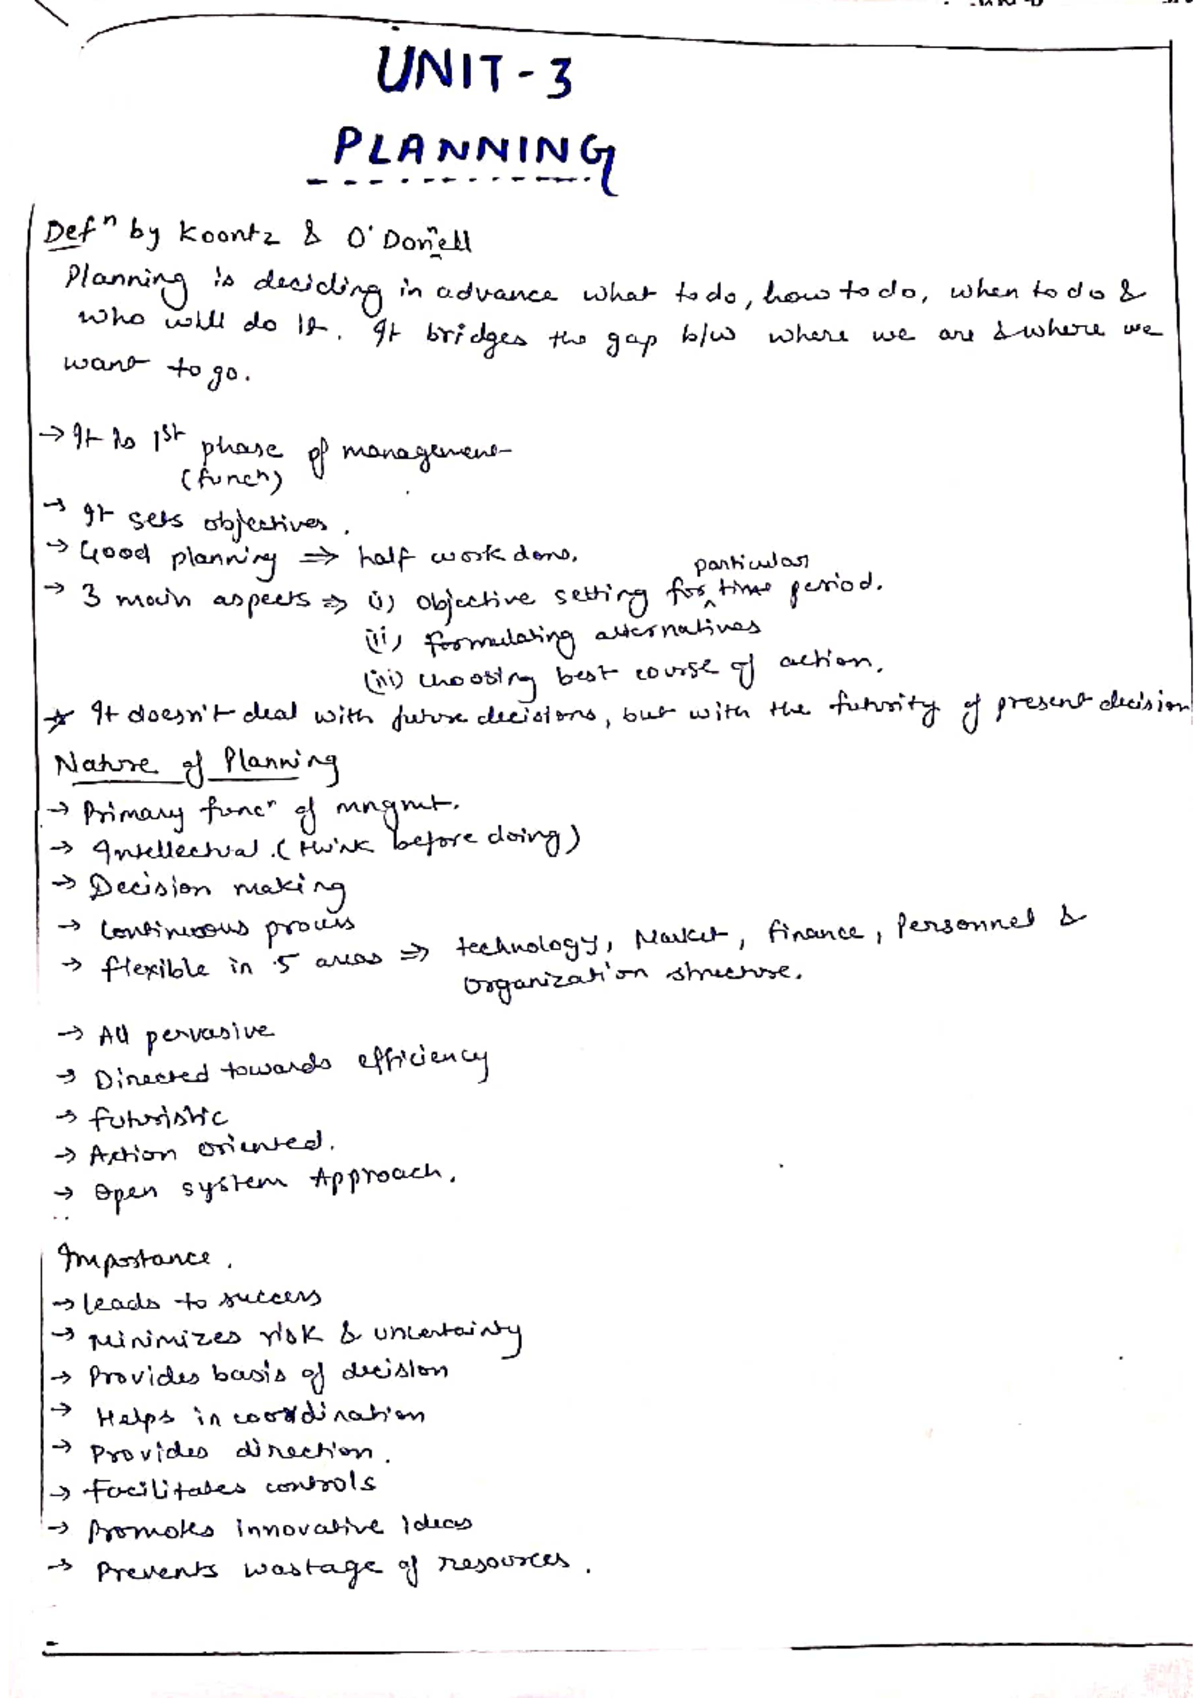 UNIT-3
PLANNING
Defⁿ by Koontz & O'Donnell
Planning is deciding in advance what to do, how to do, when to do &
who will do it. It bridges the gap b/w where we are & where we
want to go.
→ It is 1st phase of management
(funcⁿ)
→ It sets objectives.
→ Good planning ⇒ half work done.
→ 3 main aspects ⇒ (i) Objective setting for particular time period.
(ii) formulating alternatives
(iii) choosing best course of action.
☆ It doesn't deal with future decisions, but with the futurity of present decision
Nature of Planning
→ Primary funcⁿ of mngmt.
→ Intellectual. (think before doing)
→ Decision making
→ Continuous process
→ flexible in 5 areas ⇒ technology, Market, finance, Personnel &
Organization structure.
→ All pervasive
→ Directed towards efficiency
→ futuristic
→ Action oriented.
→ Open system Approach.
Importance.
→ leads to success
→ Minimizes risk & uncertainty
→ Provides basis of decision
→ Helps in coordination
→ Provides direction.
→ Facilitates controls
→ Promotes innovative ideas
→ Prevents wastage of resources.